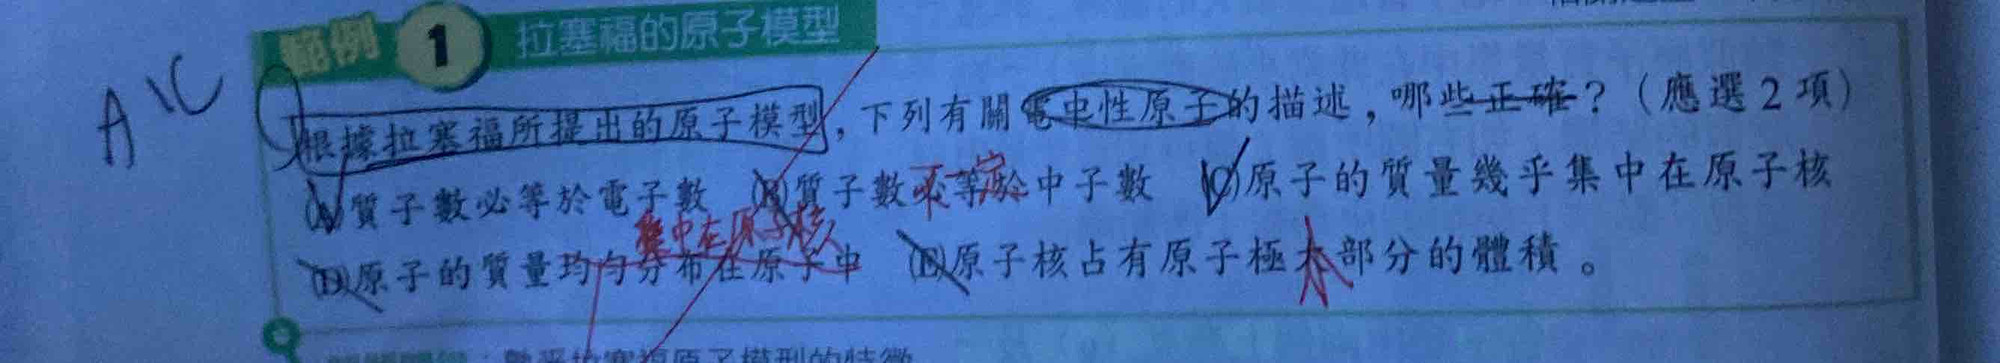 範例 1 拉塞福的原子模型
A C
根據拉塞福所提出的原子模型，下列有關電中性原子的描述，哪些正確？（應選2項）
(A)質子數必等於電子數 (B)質子數必等於中子數 (C)原子的質量幾乎集中在原子核
不一定
集中在原子核
(D)原子的質量均勻分布在原子中 (E)原子核占有原子極大部分的體積。
小
拉塞福原子模型的特徵